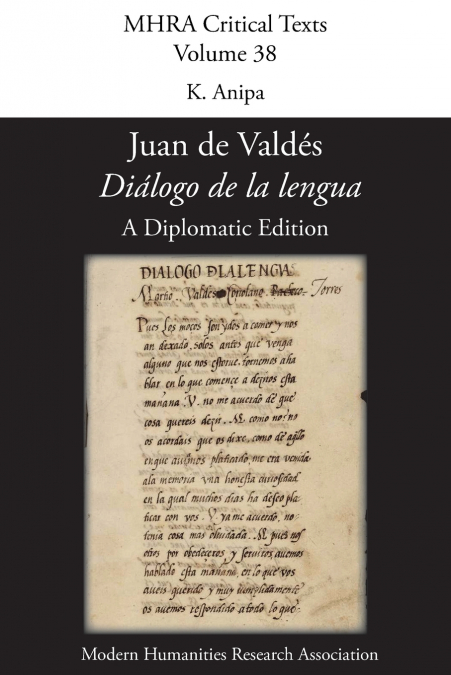 MHRA Critical Texts
Volume 38
K. Anipa
Juan de Valdés
Diálogo de la lengua
A Diplomatic Edition
DIALOGO DLALENGVA
Marcio. Valdes. Coriolano. Pacheco. Torres
Pues los moços son ydos a comer y nos
an dexado solos antes que venga
alguno que nos estorue, tornemos aha
blar en lo que comence a deziros esta
mañana. V. no me acuerdo de que
cosa quereis dezir. M. como no? no
os acordais que os dixe, como de aq̃llo
en que auiamos platicado, me era venida
ala memoria vna honesta curiosidad
en la qual muchos dias ha deseo pla
ticar con vos. V. ya me acuerdo, no
tenia cosa mas oluidada. M. pues nos
otros por obedeceros y seruiros auemos
hablado esta mañana, en lo que vos
aueis querido y muy cumplidamente
os auemos respondido a todo lo que
Modern Humanities Research Association